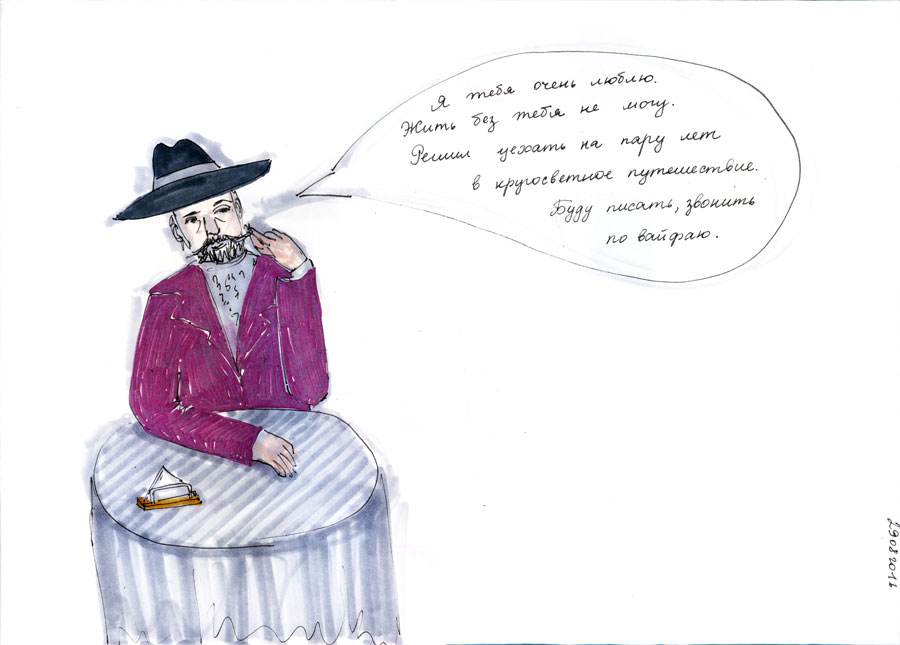 Я тебя очень люблю.
Жить без тебя не могу.
Решил уехать на пару лет
в кругосветное путешествие.
Буду писать, звонить
по вайфаю.
29082016